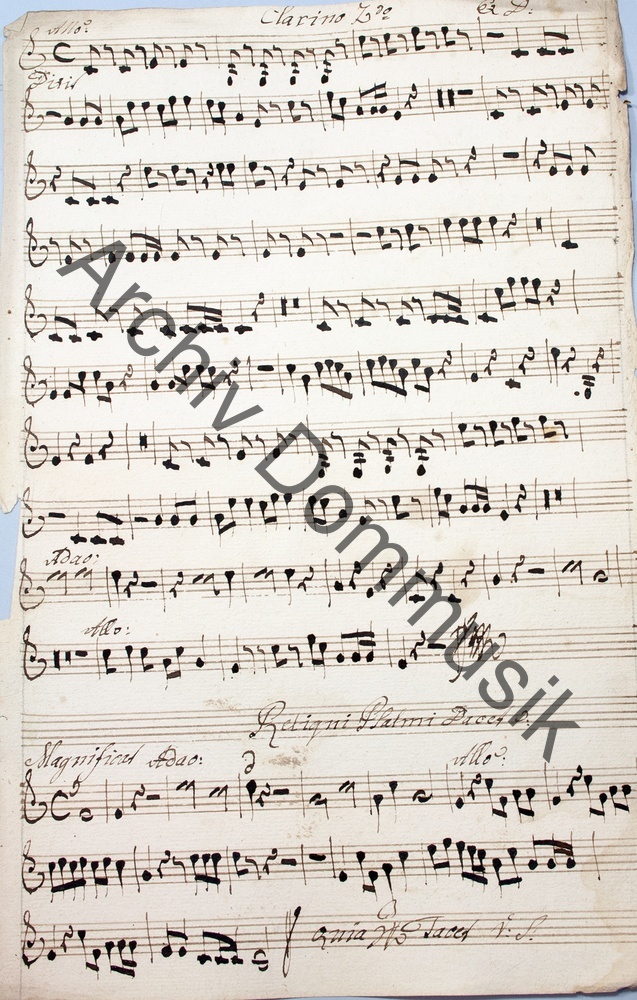 Clarino 2do ex D:
Allo:
Dixit
Adao:
Allo:
Reliqui Psalmi Tacent
Magnificat Adao: Allo:
Quia Tacet V: S:
Archiv Dommusik